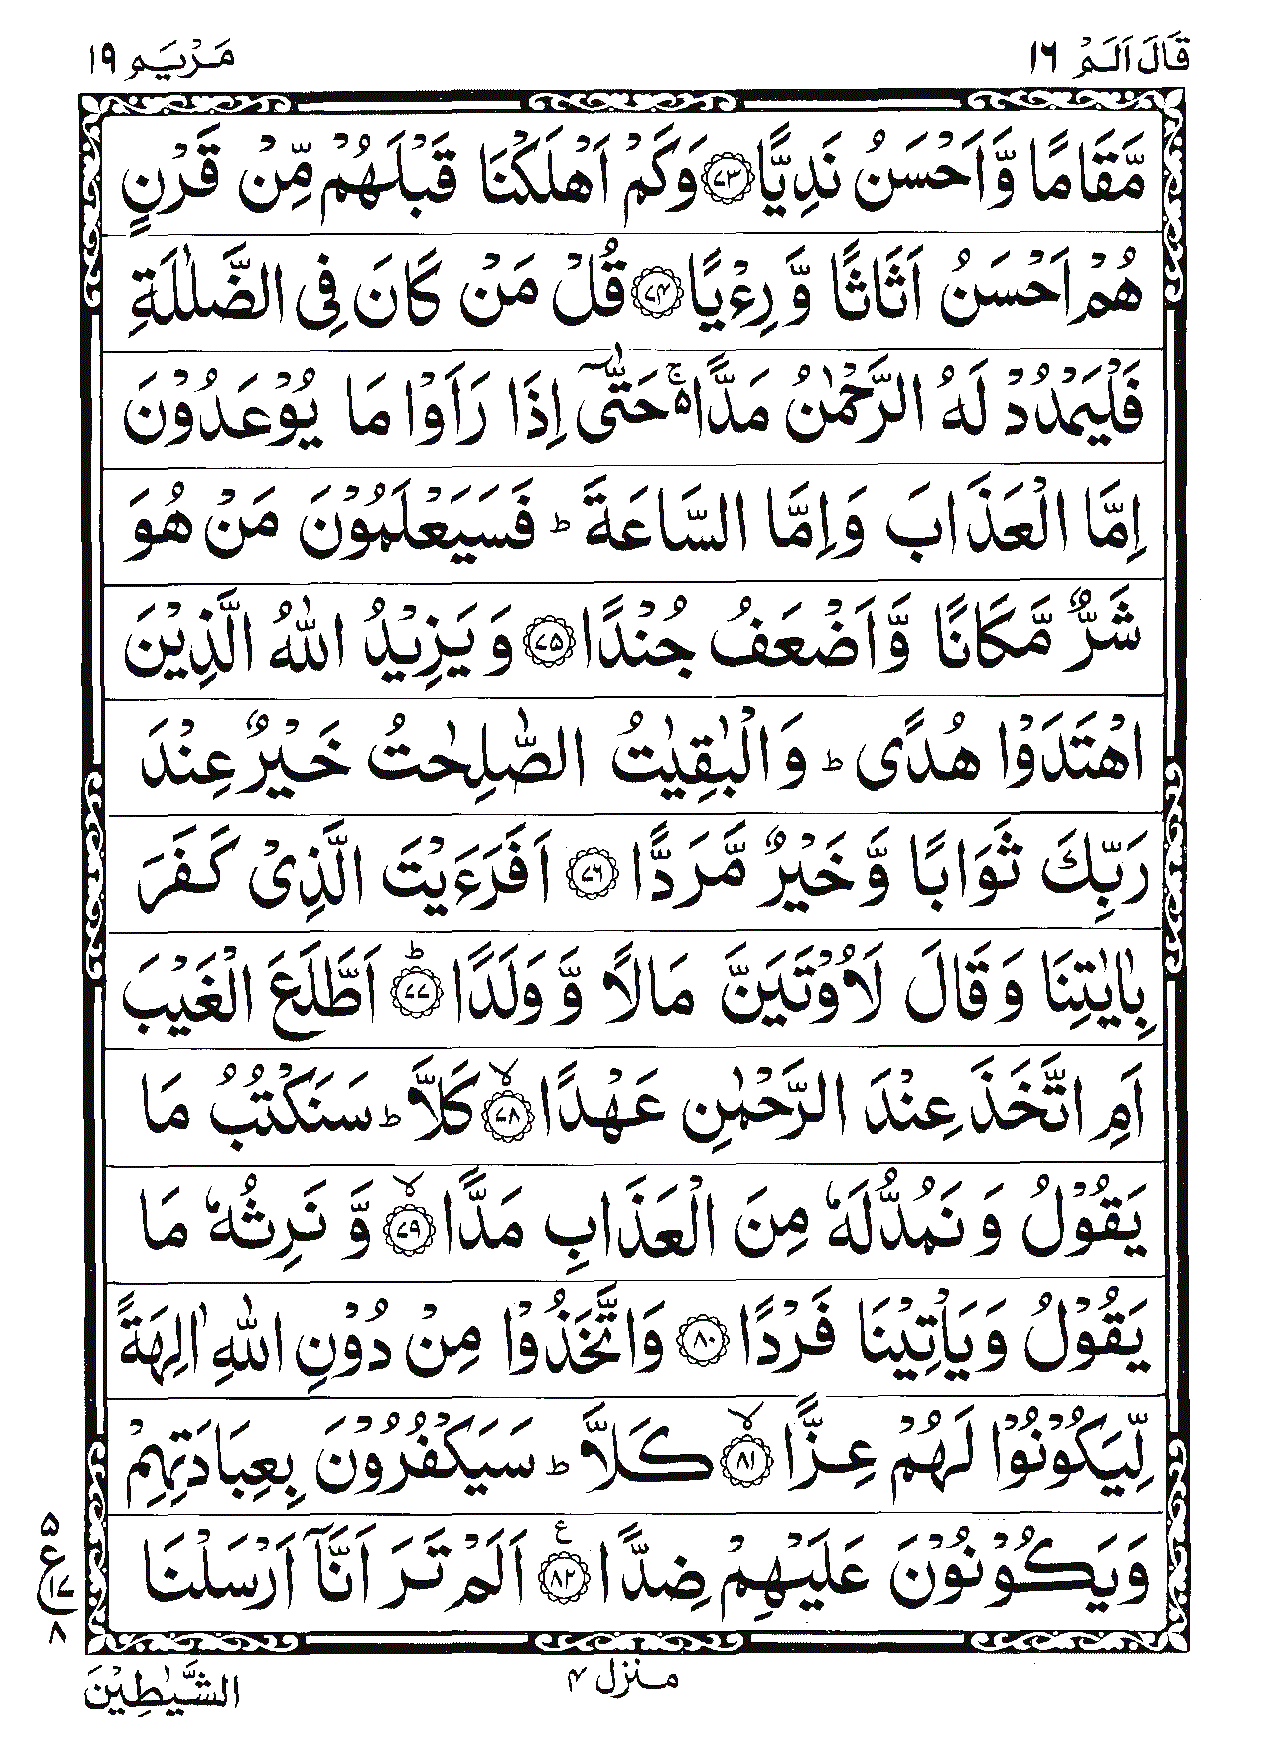 قَالَ اَلَمْ ١٦
مَرْيَم ١٩
مَّقَامًا وَّاَحْسَنُ نَدِيًّا ﴿۷۳﴾ وَكَمْ اَهْلَكْنَا قَبْلَهُمْ مِّنْ قَرْنٍ
هُمْ اَحْسَنُ اَثَاثًا وَّ رِءْيًا ﴿۷۴﴾ قُلْ مَنْ كَانَ فِى الضَّلٰلَةِ
فَلْيَمْدُدْ لَهُ الرَّحْمٰنُ مَدًّا ۵ۚ حَتّٰٓى اِذَا رَاَوْا مَا يُوْعَدُوْنَ
اِمَّا الْعَذَابَ وَاِمَّا السَّاعَةَ ؕ فَسَيَعْلَمُوْنَ مَنْ هُوَ
شَرٌّ مَّكَانًا وَّاَضْعَفُ جُنْدًا ﴿۷۵﴾ وَ يَزِيْدُ اللّٰهُ الَّذِيْنَ
اهْتَدَوْا هُدًى ؕ وَالْبٰقِيٰتُ الصّٰلِحٰتُ خَيْرٌ عِنْدَ
رَبِّكَ ثَوَابًا وَّ خَيْرٌ مَّرَدًّا ﴿۷۶﴾ اَفَرَءَيْتَ الَّذِىْ كَفَرَ
بِاٰيٰتِنَا وَ قَالَ لَاُوْتَيَنَّ مَالًا وَّ وَلَدًا ؕ﴿۷۷﴾ اَطَّلَعَ الْغَيْبَ
اَمِ اتَّخَذَ عِنْدَ الرَّحْمٰنِ عَهْدًا ۙ﴿۷۸﴾ كَلَّا ؕ سَنَكْتُبُ مَا
يَقُوْلُ وَ نَمُدُّ لَهٗ مِنَ الْعَذَابِ مَدًّا ۙ﴿۷۹﴾ وَّ نَرِثُهٗ مَا
يَقُوْلُ وَ يَاْتِيْنَا فَرْدًا ﴿۸۰﴾ وَاتَّخَذُوْا مِنْ دُوْنِ اللّٰهِ اٰلِهَةً
لِّيَكُوْنُوْا لَهُمْ عِزًّا ۙ﴿۸۱﴾ كَلَّا ؕ سَيَكْفُرُوْنَ بِعِبَادَتِهِمْ
وَيَكُوْنُوْنَ عَلَيْهِمْ ضِدًّا ﴿۸۲﴾ ع اَلَمْ تَرَ اَنَّآ اَرْسَلْنَا
۵
ع ١۷
۸
منزل ۴
الشَّيٰطِيْنَ